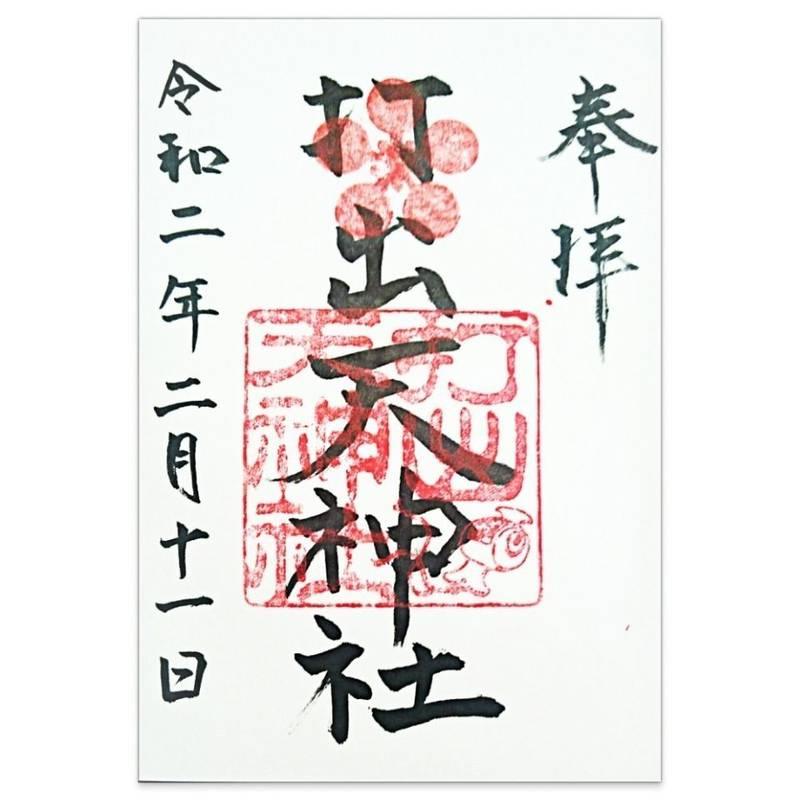 奉拝
打出天神社
打出
天神社
令和二年二月十一日